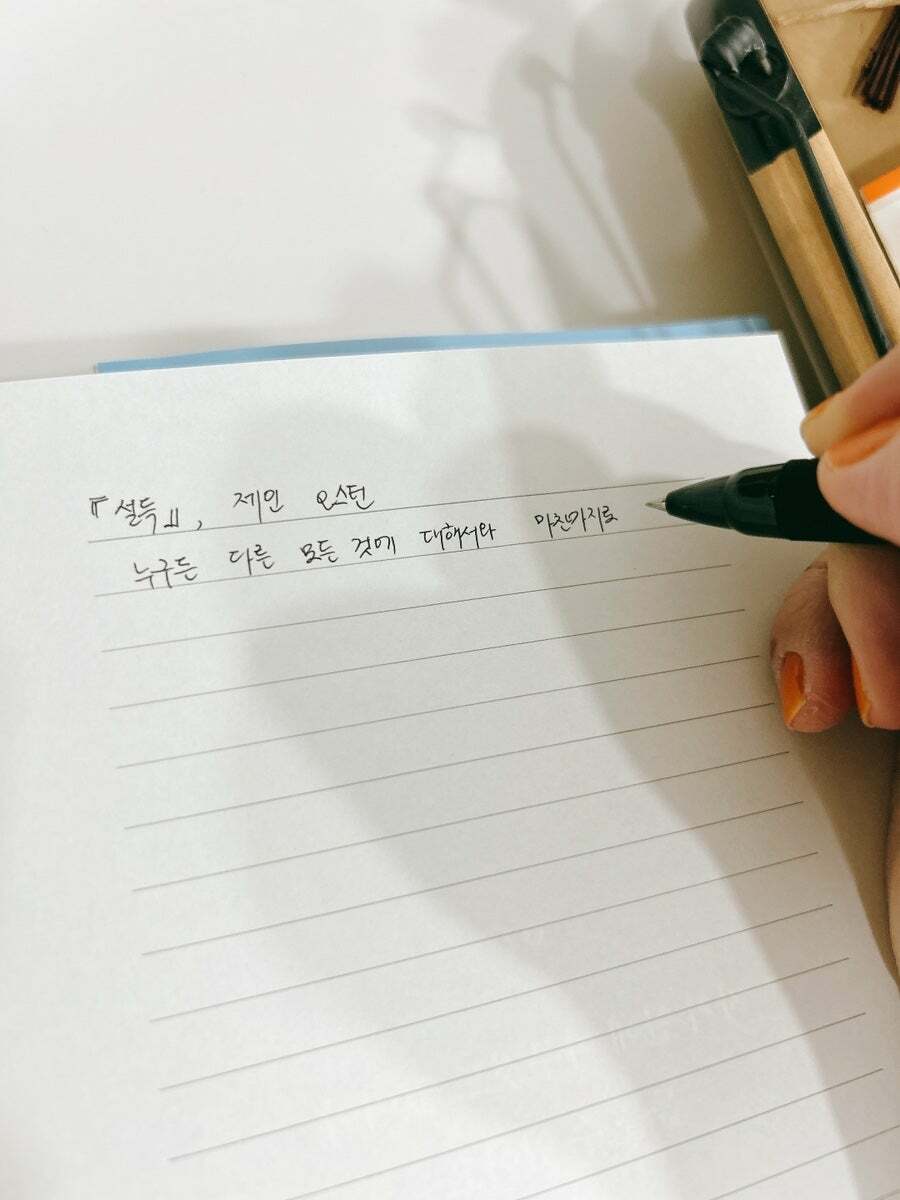 『설득』, 제인 오스턴
누구든 다른 모든 것에 대해서와 마찬가지로